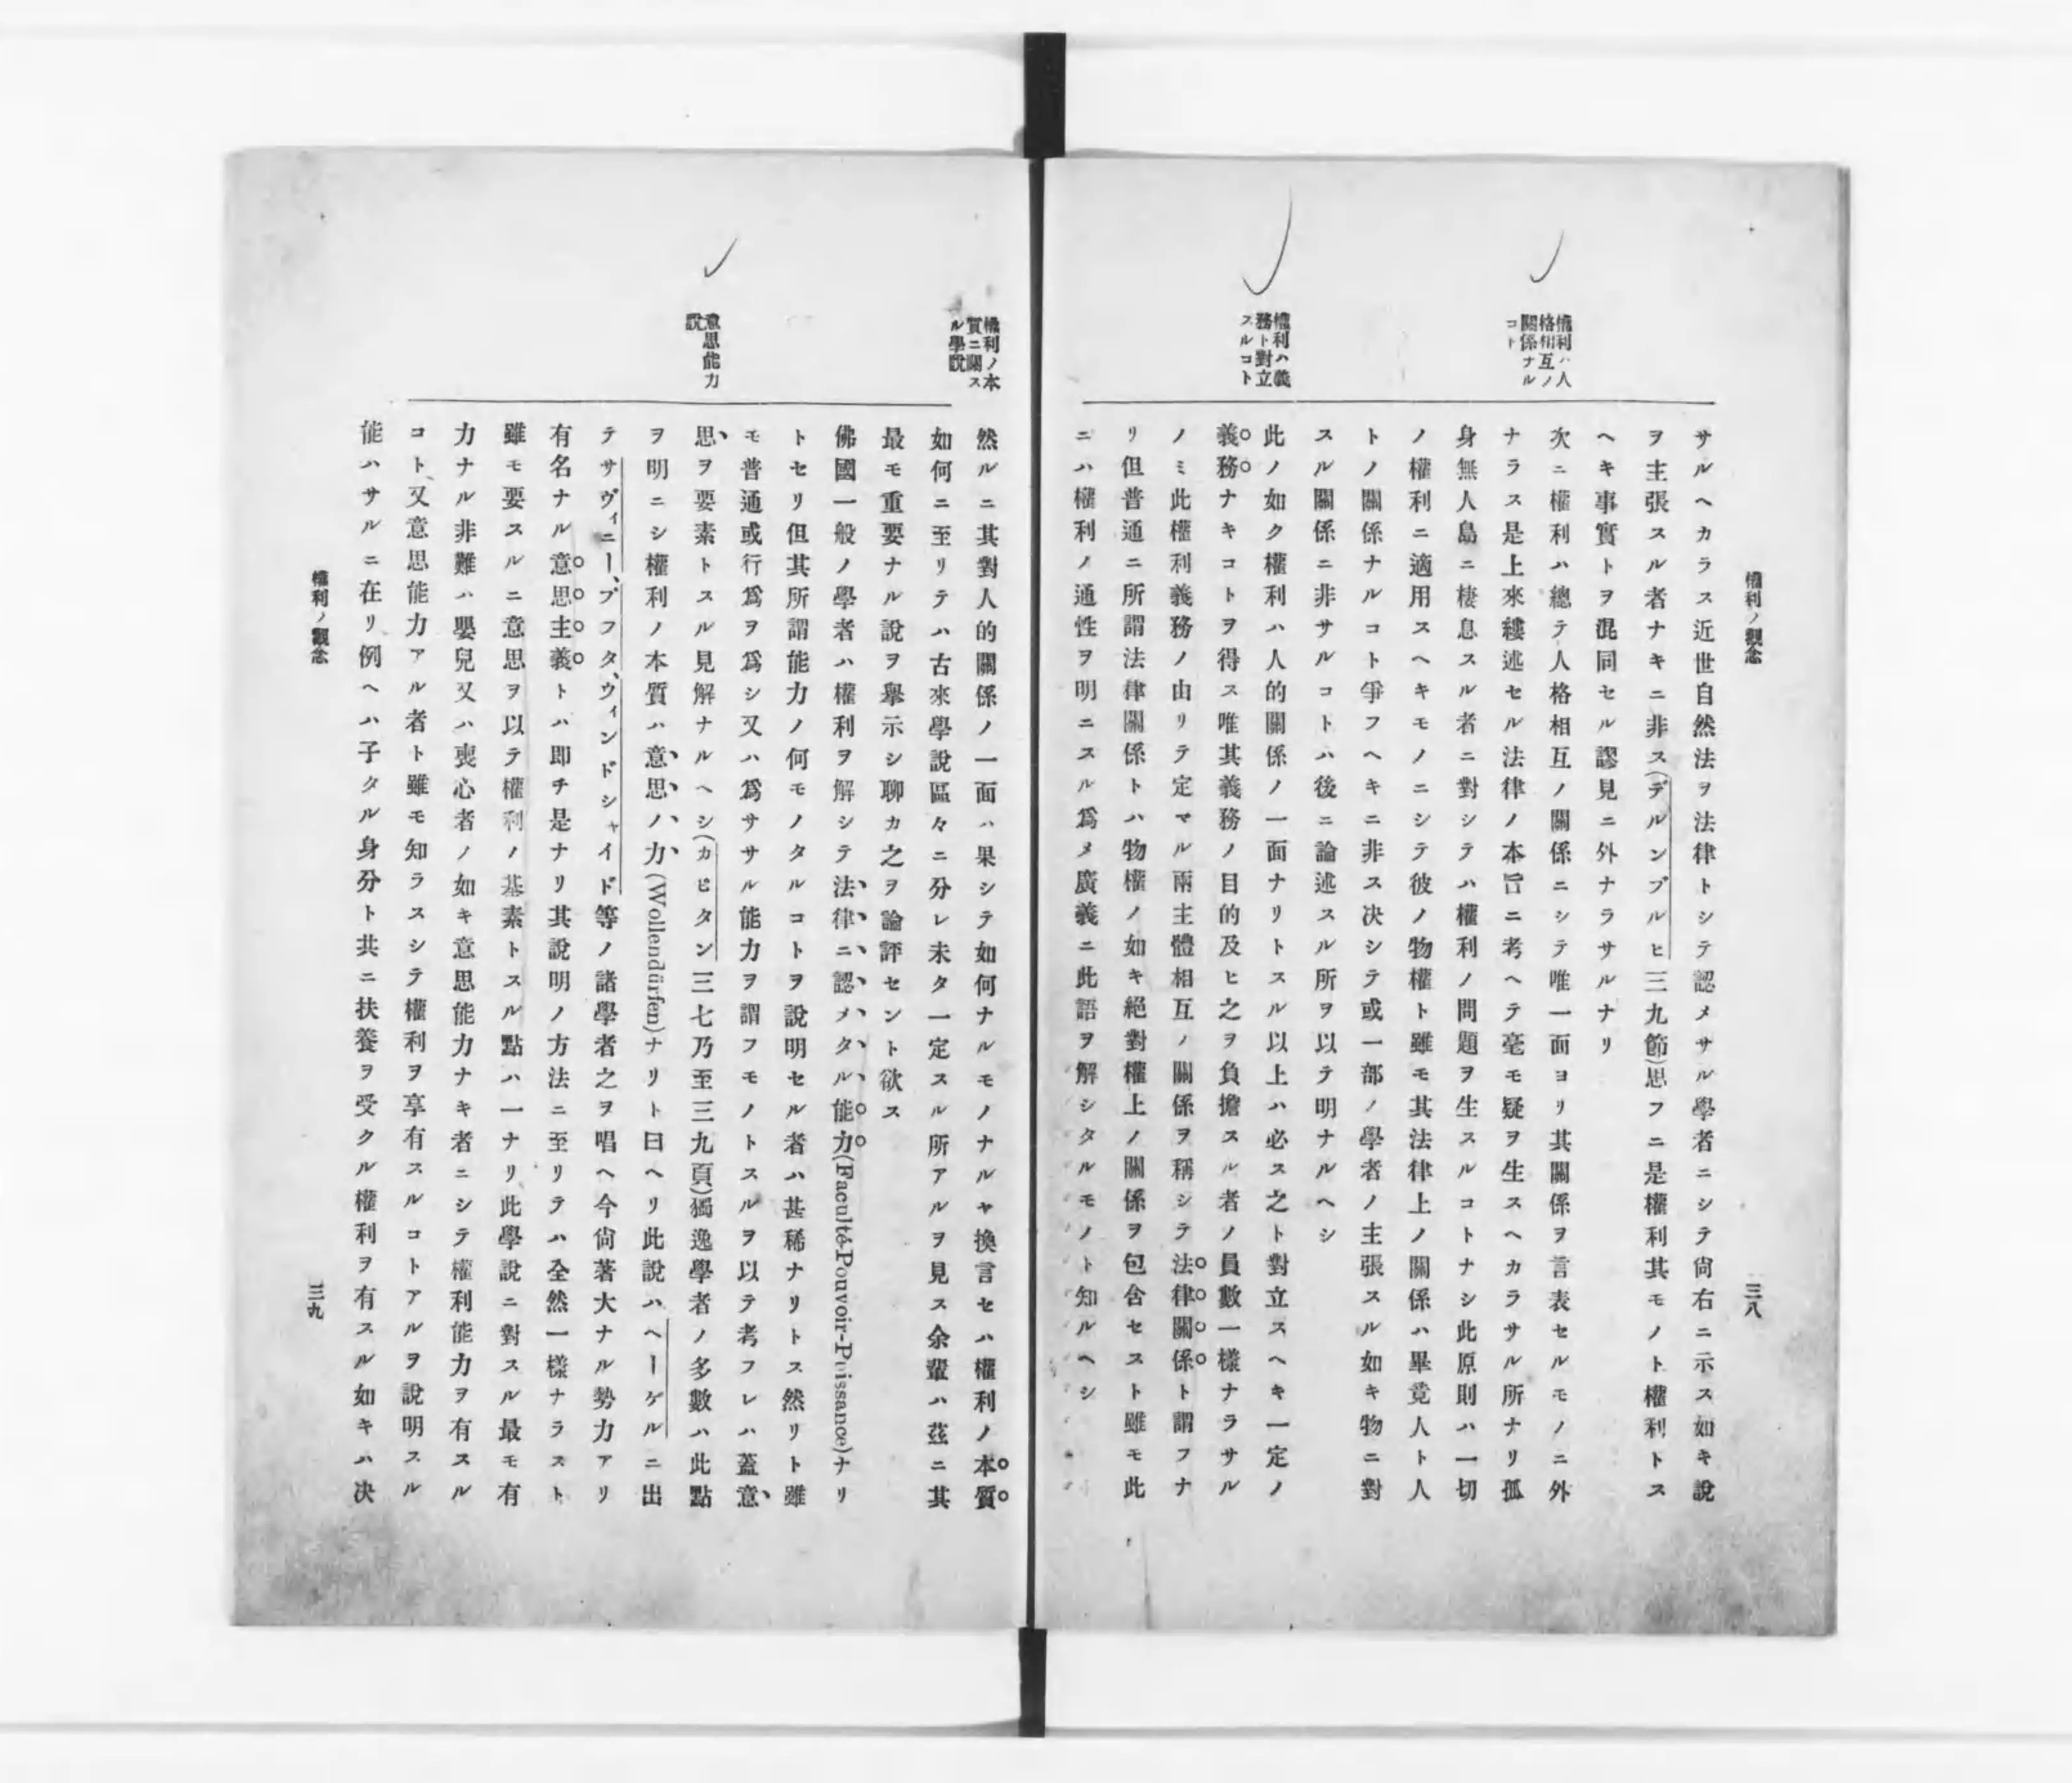 權利ノ觀念
三八
權利ハ人
格相互ノ
關係ナル
コト
權利ハ義
務ト對立
スルコト
サルヘカラス近世自然法ヲ法律トシテ認メサル學者ニシテ尙右ニ示ス如キ說
ヲ主張スル者ナキニ非ス(デルンブルヒ三九節)思フニ是權利其モノト權利トス
ヘキ事實トヲ混同セル謬見ニ外ナラサルナリ
次ニ權利ハ總テ人格相互ノ關係ニシテ唯一面ヨリ其關係ヲ言表セルモノニ外
ナラス是上來縷述セル法律ノ本旨ニ考ヘテ毫モ疑ヲ生スヘカラサル所ナリ孤
身無人島ニ棲息スル者ニ對シテハ權利ノ問題ヲ生スルコトナシ此原則ハ一切
ノ權利ニ適用スヘキモノニシテ彼ノ物權ト雖モ其法律上ノ關係ハ畢竟人ト人
トノ關係ナルコト爭フヘキニ非ス決シテ或一部ノ學者ノ主張スル如キ物ニ對
スル關係ニ非サルコトハ後ニ論述スル所ヲ以テ明ナルヘシ
此ノ如ク權利ハ人的關係ノ一面ナリトスル以上ハ必ス之ト對立スヘキ一定ノ
義務ナキコトヲ得ス唯其義務ノ目的及ヒ之ヲ負擔スル者ノ員數一樣ナラサル
ノミ此權利義務ノ由リテ定マル兩主體相互ノ關係ヲ稱シテ法律關係ト謂フナ
リ但普通ニ所謂法律關係トハ物權ノ如キ絕對權上ノ關係ヲ包含セスト雖モ此
ニハ權利ノ通性ヲ明ニスル爲メ廣義ニ此語ヲ解シタルモノト知ルヘシ
權利ノ本
質ニ關ス
ル學說
意思能力
說
然ルニ其對人的關係ノ一面ハ果シテ如何ナルモノナルヤ換言セハ權利ノ本質
如何ニ至リテハ古來學說區々ニ分レ未タ一定スル所アルヲ見ス余輩ハ茲ニ其
最モ重要ナル說ヲ擧示シ聊カ之ヲ論評セント欲ス
佛國一般ノ學者ハ權利ヲ解シテ法律ニ認メタル能力(Faculté-Pouvoir-Puissance)ナリ
トセリ但其所謂能力ノ何モノタルコトヲ說明セル者ハ甚稀ナリトス然リト雖
モ普通或行爲ヲ爲シ又ハ爲ササル能力ヲ謂フモノトスルヲ以テ考フレハ蓋意
思ヲ要素トスル見解ナルヘシ(カピタン三七乃至三九頁)獨逸學者ノ多數ハ此點
ヲ明ニシ權利ノ本質ハ意思ノ力(Wollendürfen)ナリト曰ヘリ此說ハヘーゲルニ出
テサヴィニー、プフタ、ウィンドシャイド等ノ諸學者之ヲ唱ヘ今尙著大ナル勢力アリ
有名ナル意思主義トハ卽チ是ナリ其說明ノ方法ニ至リテハ全然一樣ナラスト
雖モ要スルニ意思ヲ以テ權利ノ基素トスル點ハ一ナリ此學說ニ對スル最モ有
力ナル非難ハ嬰兒又ハ喪心者ノ如キ意思能力ナキ者ニシテ權利能力ヲ有スル
コト又意思能力アル者ト雖モ知ラスシテ權利ヲ享有スルコトアルヲ說明スル
能ハサルニ在リ例ヘハ子タル身分ト共ニ扶養ヲ受クル權利ヲ有スル如キハ決
權利ノ觀念
三九